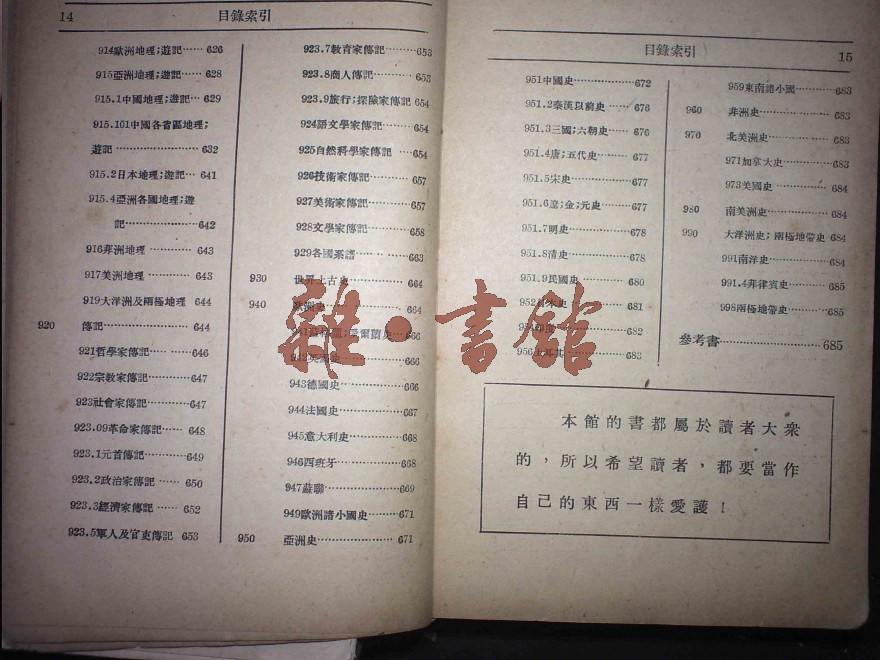 14 目錄索引
914歐洲地理;遊記⋯⋯ 626
915亞洲地理;遊記⋯⋯ 628
915.1中國地理;遊記⋯ 629
915.101中國各省區地理;
遊記⋯⋯⋯⋯⋯ 632
915.2日本地理;遊記⋯ 641
915.4亞洲各國地理;遊
記⋯⋯⋯⋯⋯642
916非洲地理⋯⋯⋯ 643
917美洲地理⋯⋯⋯ 643
919大洋洲及兩極地理 644
920 傳記⋯⋯⋯⋯⋯644
921哲學家傳記⋯⋯ 646
922宗教家傳記⋯⋯647
923社會家傳記⋯⋯647
923.09革命家傳記⋯⋯ 648
923.1元首傳記⋯⋯⋯649
923.2政治家傳記⋯⋯ 650
923.3經濟家傳記⋯⋯ 652
923.5軍人及官吏傳記 653
923.7教育家傳記⋯⋯⋯653
923.8商人傳記⋯⋯⋯653
923.9旅行;探險家傳記 654
924語文學家傳記⋯⋯654
925自然科學家傳記⋯654
926技術家傳記⋯⋯⋯657
927美術家傳記⋯⋯⋯657
928文學家傳記⋯⋯⋯658
929各國系譜⋯⋯⋯663
930 世界上古史⋯⋯⋯664
940 歐洲史⋯⋯⋯664
⋯666
666
943德國史⋯⋯⋯⋯666
944法國史⋯⋯⋯⋯667
945意大利史⋯⋯⋯668
946西班牙⋯⋯⋯⋯668
947蘇聯⋯⋯⋯⋯669
949歐洲諸小國史⋯⋯671
950 亞洲史⋯⋯⋯⋯671
目錄索引 15
951中國史⋯⋯⋯⋯672
951.2秦漢以前史⋯⋯ 676
951.3三國;六朝史⋯⋯ 676
951.4唐;五代史⋯⋯⋯677
951.5宋史⋯⋯⋯⋯677
951.6遼;金;元史⋯⋯677
951.7明史⋯⋯⋯⋯678
951.8清史⋯⋯⋯⋯678
951.9民國史⋯⋯⋯680
952日本史⋯⋯⋯681
682
956土耳其⋯⋯⋯683
959東南諸小國⋯⋯⋯683
960 非洲史⋯⋯⋯⋯683
970 北美洲史⋯⋯⋯⋯683
971加拿大史⋯⋯⋯683
973美國史⋯⋯⋯⋯684
980 南美洲史⋯⋯⋯⋯684
990 大洋洲史;兩極地帶史 684
991南洋史⋯⋯⋯⋯684
991.4菲律賓史⋯⋯⋯685
998兩極地帶史⋯⋯⋯685
參考書⋯⋯⋯⋯⋯685
本館的書都屬於讀者大衆
的,所以希望讀者,都要當作
自己的東西一樣愛護!
雜·書館